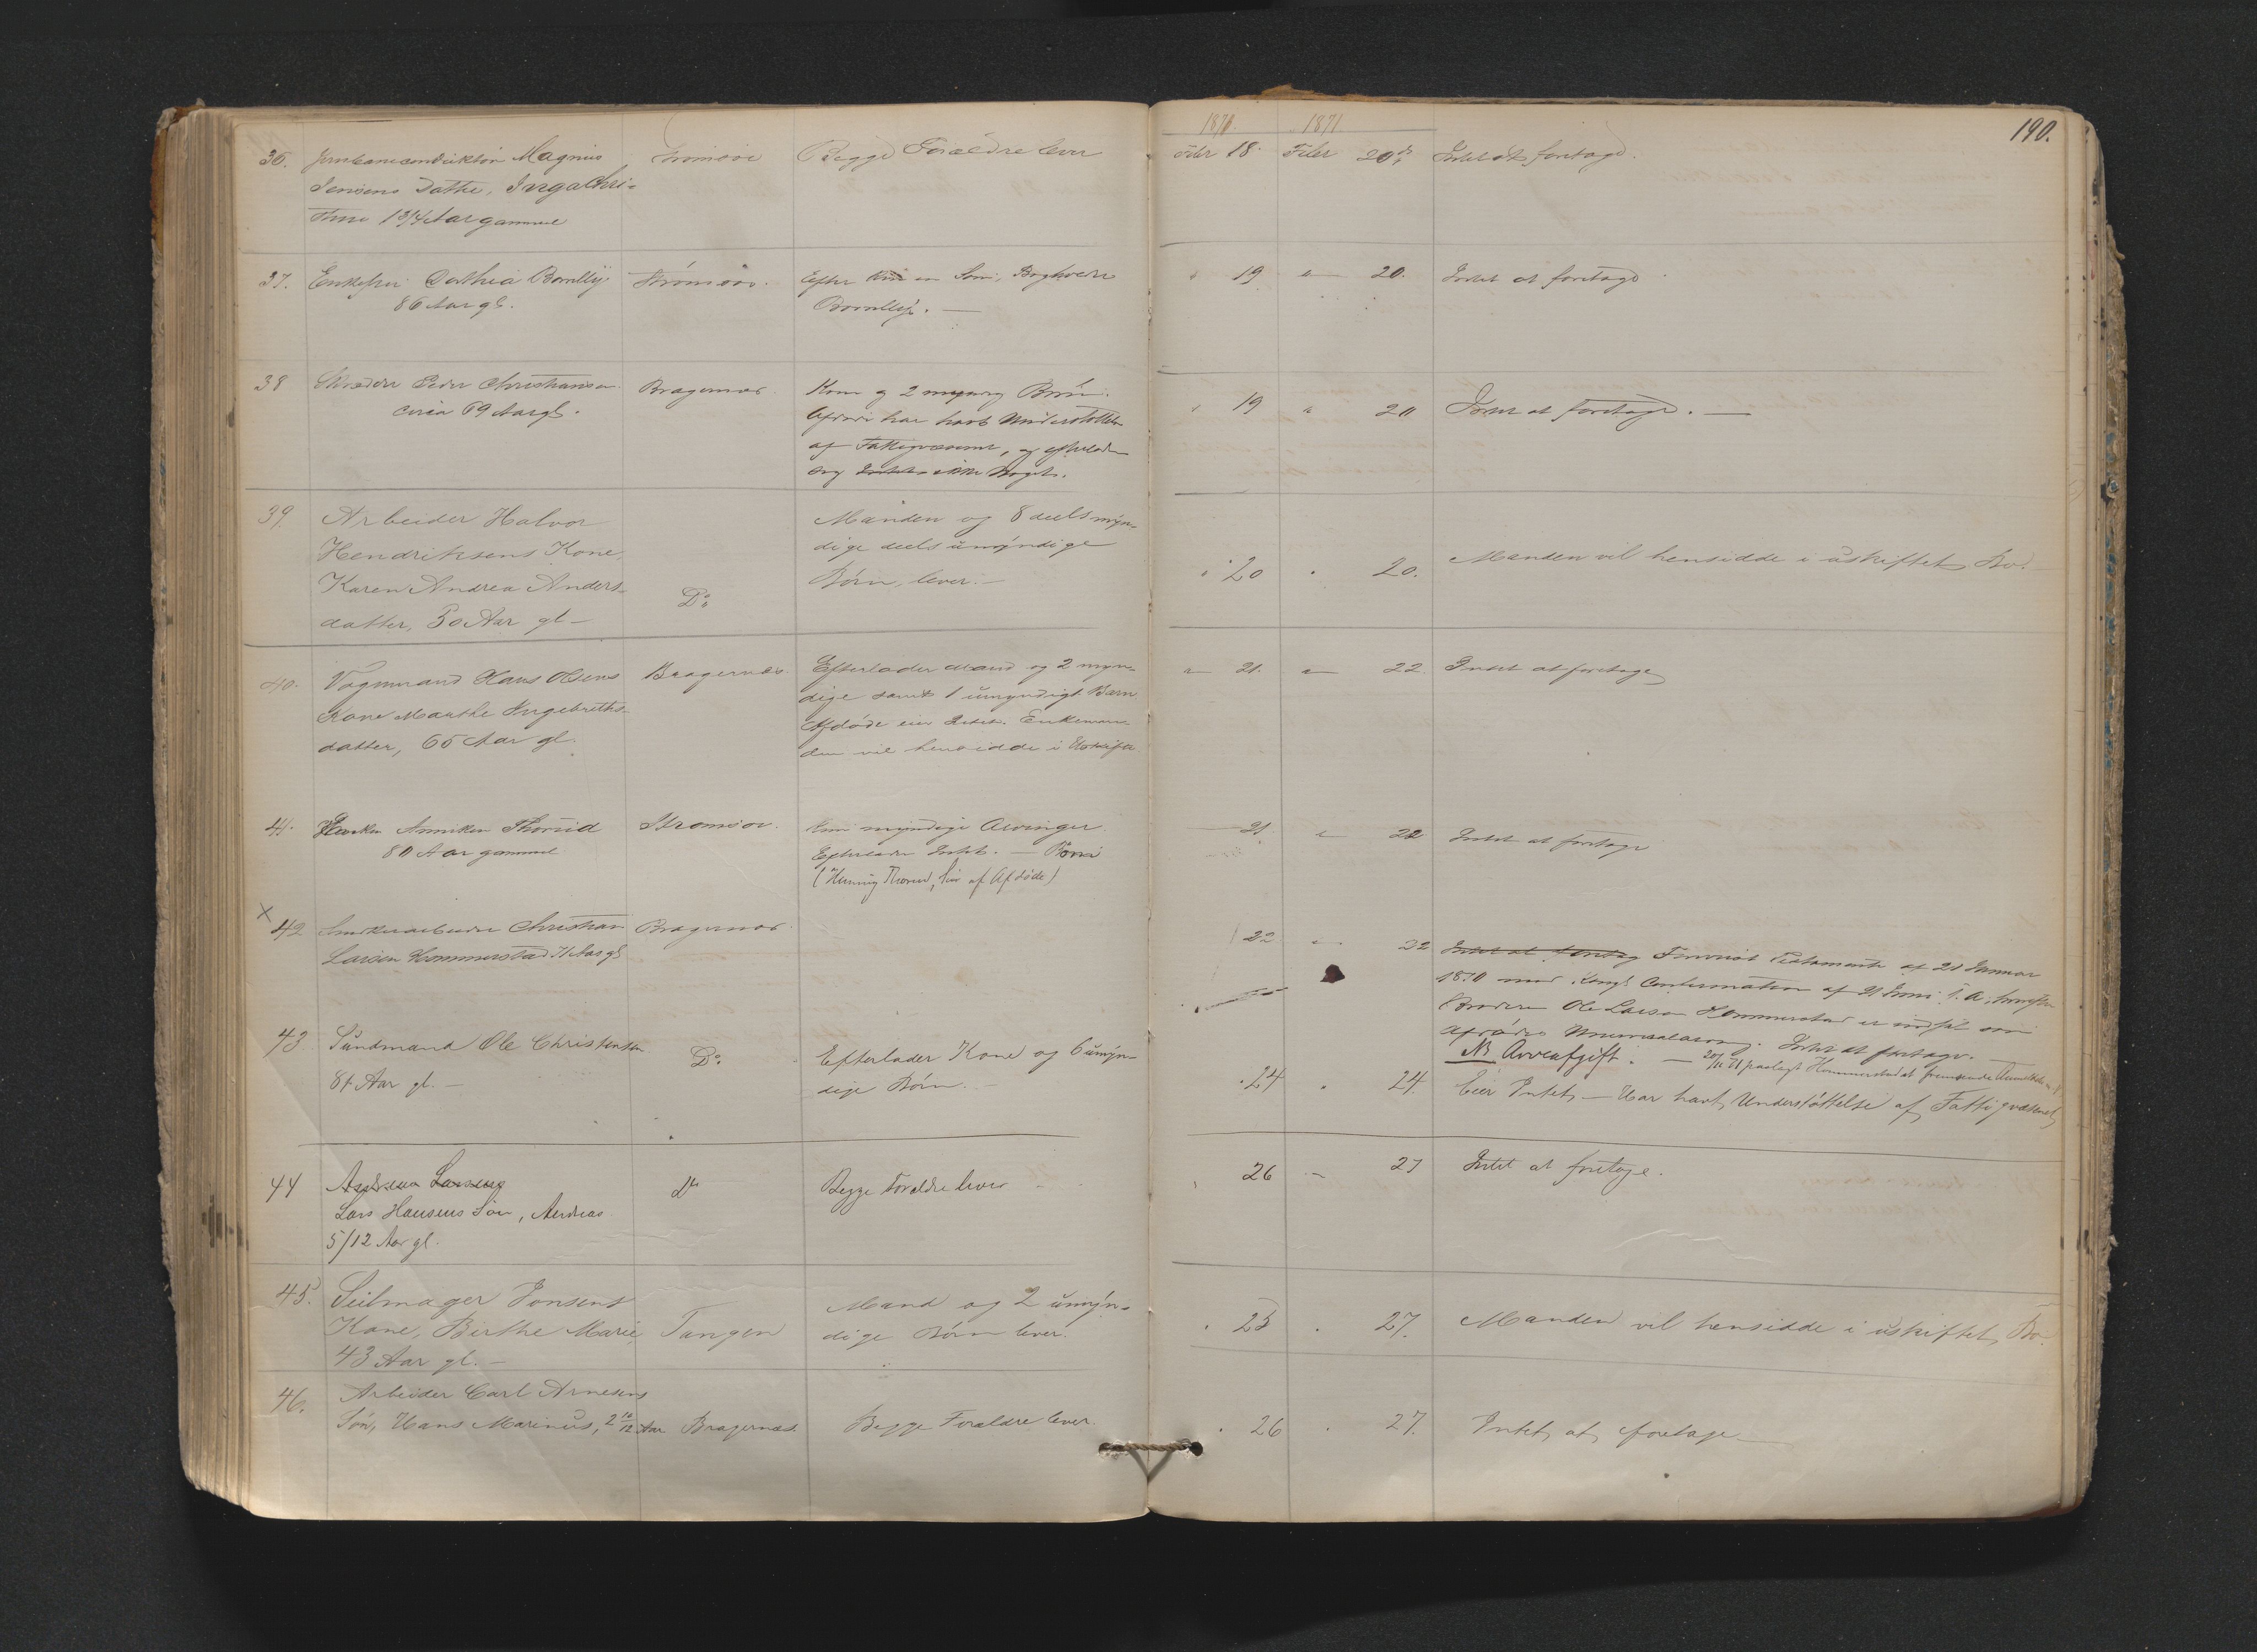 190.
1871. 1871.
36. Jernbaneconduktør Magnus Strømsøe Begge Forældre lever Febr 18. Febr 20de Intet at foretage.
Jensens Datter, Inga Chri-
stine 1 3/4 Aar gammel
37. Enkefru Dorthea Bornlly Strømsøe. Efter en Søn, Boghveder " 19 " 20. Intet at foretage
86 Aar gl. Bornlly. —
38 Skræder Peder Christiansen Bragernæs. Kone og 2 myndig Børn. " 19 " 20 Intet at foretage. —
circa 69 Aar gl. Afdøde har havt Understøttelse
af Fattigvæsenet, og efterlader
sig Intet ikke Noget.
39. Arbeider Halvor Manden og 8 deels myn-
Hendriksens Kone, dige deels umyndige
Karen Andrea Anders- Do Børn, lever. — " 20 " 20. Manden vil hensidde i uskiftet Bo.
datter, 50 Aar gl —
40. Vognmand Hans Olsens Bragernæs. Efterlader Mand og 2 myn- " 21. " 22. Intet at foretage
Kone Marthe Ingebreths- dige samt 1 umyndigt Barn
datter, 65 Aar gl. Afdøde eier Intet. Enkeman-
den vil hensidde i Uskifte
41. Enken Anniken Thorrud Strømsøe. Kun myndige Arvinger. " 21. " 22 Intet at foretage
80 Aar gammel Efterlader Intet. —
(Henning Thorrud, Søn af Afdøde)
x 42 Christian Bragernæs. " 22 " 22 Intet at foretage Forevist Testamente af 21 Januar
Larsen Hommerstad 71 Aar gl 1870 med Kongl Confirmation af 21 Juni s. A., hvorefter
Broderen Ole Larsen Hommerstad er indsat som
Afdødes Universalarving. Intet at foretage. —
NB Arveafgift. — 20/11 71 paalagt Hommerstad at fremsende
43 Sundmand Ole Christensen Do Efterlader Kone og 6 umyn- " 24 " 24. Eier Intet — Har havt Understøttelse af Fattigvæsenet
81 Aar gl. — dige Børn. —
44 Andreas Larsens Do Begge Forældre lever " 26 — 27 Intet at foretage.
Lars Hansens Søn, Andreas
5/12 Aar gl.
45. Seilmager Jonsens Mand og 2 umyn- " 25 " 27. Manden vil hensidde i uskiftet Bo.
Kone, Birthe Marie, Tangen dige Børn lever.
43 Aar gl. —
46. Arbeider Carl Arnesens
Søn, Hans Marinus, 2 10/12 Aar Bragernæs. Begge Forældre lever. " 26 " 27. Intet at foretage